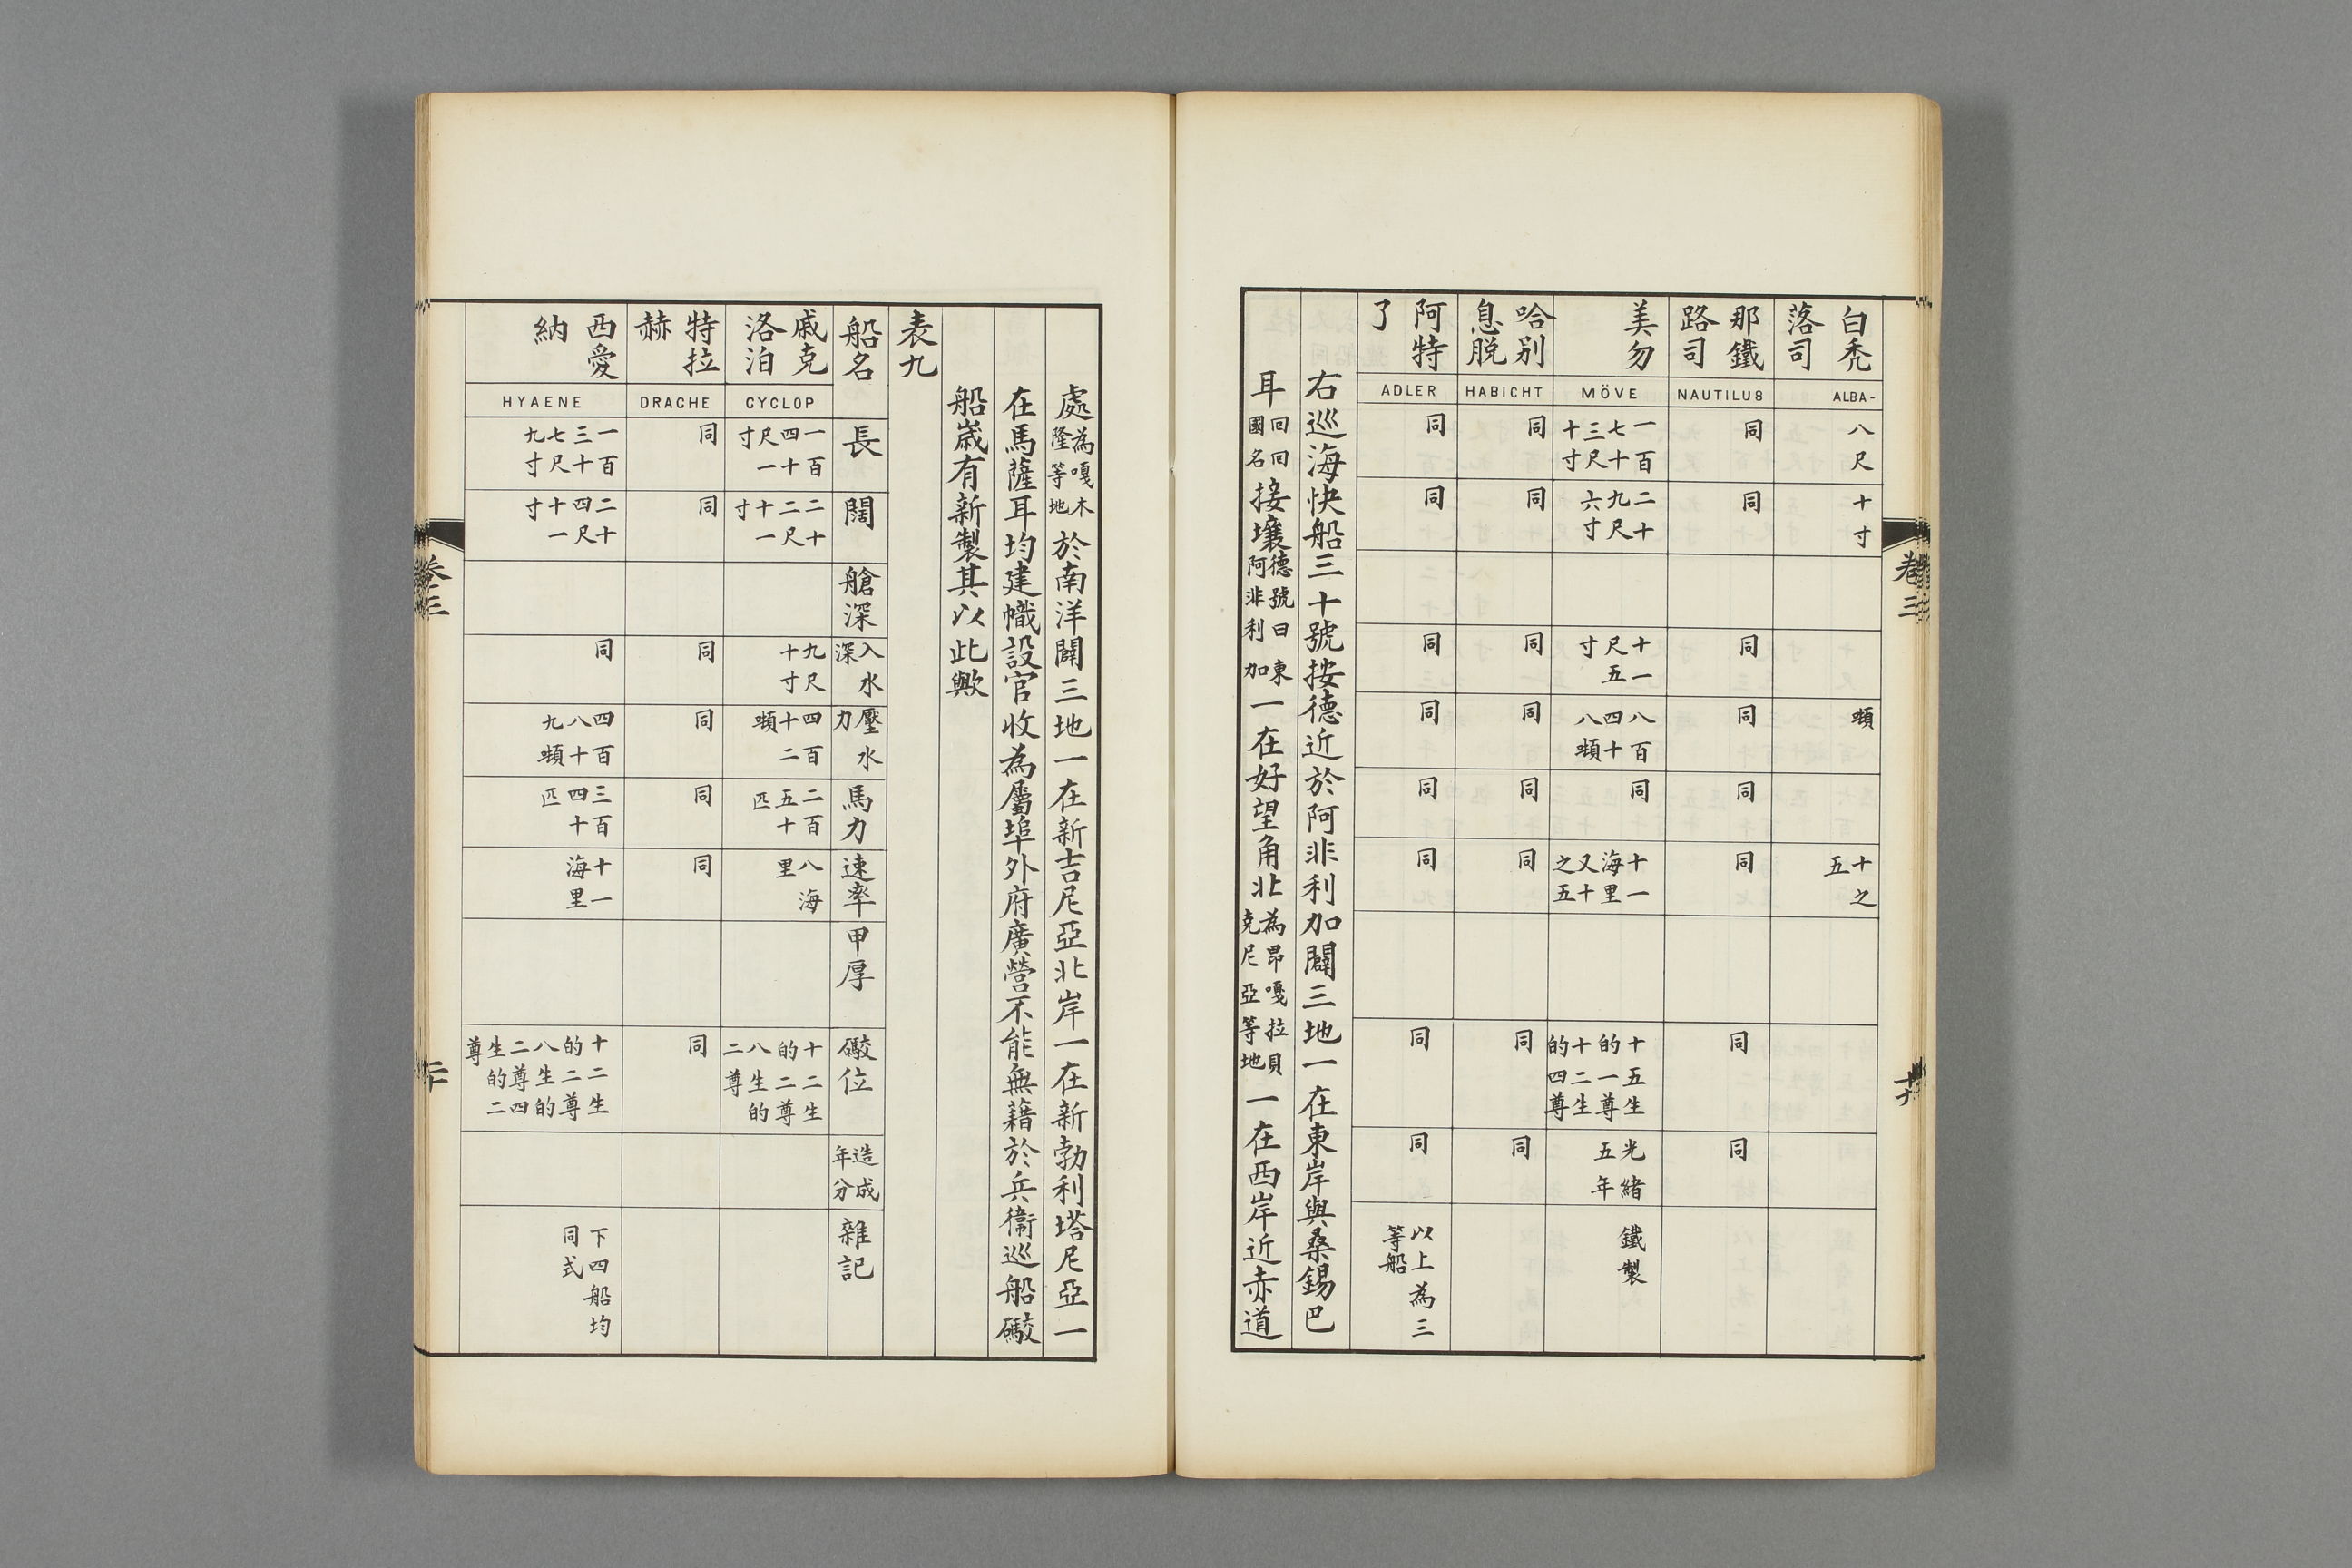 白禿落司
ALBA-
八尺
十寸
噸
十之五
那鐵路司
NAUTILUS
同
同
同
同
同
同
同
同
美勿
MÖVE
一百七十三尺十寸
二十九尺六寸
十一尺五寸
八百四十八噸
同
十一海里又十之五
十五生的一尊十二生的四尊
光緒五年
鐵製
哈別息脫
HABICHT
同
同
同
同
同
同
同
同
阿特了
ADLER
同
同
同
同
同
同
同
同
以上為三等船
右巡海快船三十號按德近於阿非利加闢三地一在東岸與桑錫巴
耳回回國名接壤德號曰東阿非利加一在好望角北為昂嘎拉貝克尼亞等地一在西岸近赤道
卷三
十九
處為嘎木隆等地於南洋闢三地一在新吉尼亞北岸一在新勃利塔尼亞一
在馬薩耳均建幟設官收為屬埠外府廣營不能無藉於兵衛巡船礮
船歲有新製其以此歟
表九
船名
長
闊
艙深
入水深
壓水力
馬力
速率
甲厚
礮位
造成年分
雜記
戚克洛泊
CYCLOP
一百四十尺一寸
二十二尺十一寸
九尺十寸
四百十二噸
二百五十匹
八海里
十二生的二尊八生的二尊
特拉赫
DRACHE
同
同
同
同
同
同
同
西愛納
HYAENE
一百三十七尺九寸
二十四尺十一寸
同
四百八十九噸
三百四十匹
十一海里
十二生的二尊八生的二尊四生的二尊
下四船均同式
卷三
二十